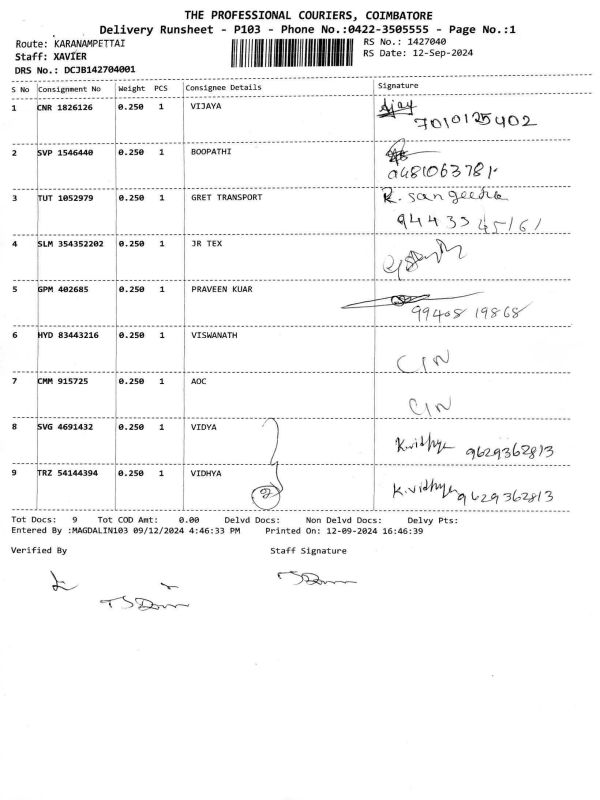 THE PROFESSIONAL COURIERS, COIMBATORE
Delivery Runsheet - P103 - Phone No.:0422-3505555 - Page No.:1
Route: KARANAMPETTAI RS No.: 1427040
Staff: XAVIER RS Date: 12-Sep-2024
DRS No.: DCJB142704001
S No Consignment No Weight PCS Consignee Details Signature
1 CNR 1826126 0.250 1 VIJAYA Ajay
7010125402
2 SVP 1546440 0.250 1 BOOPATHI
3 TUT 1052979 0.250 1 GRET TRANSPORT R. sangeetha
9443345161
4 SLM 354352202 0.250 1 JR TEX
5 GPM 402685 0.250 1 PRAVEEN KUAR
9940819868
6 HYD 83443216 0.250 1 VISWANATH
CIN
7 CMM 915725 0.250 1 AOC
CIN
8 SVG 4691432 0.250 1 VIDYA K.vidhya 9629362813
9 TRZ 54144394 0.250 1 VIDHYA K.vidhya 9629362813
2
Tot Docs: 9 Tot COD Amt: 0.00 Delvd Docs: Non Delvd Docs: Delvy Pts:
Entered By :MAGDALIN103 09/12/2024 4:46:33 PM Printed On: 12-09-2024 16:46:39
Verified By Staff Signature